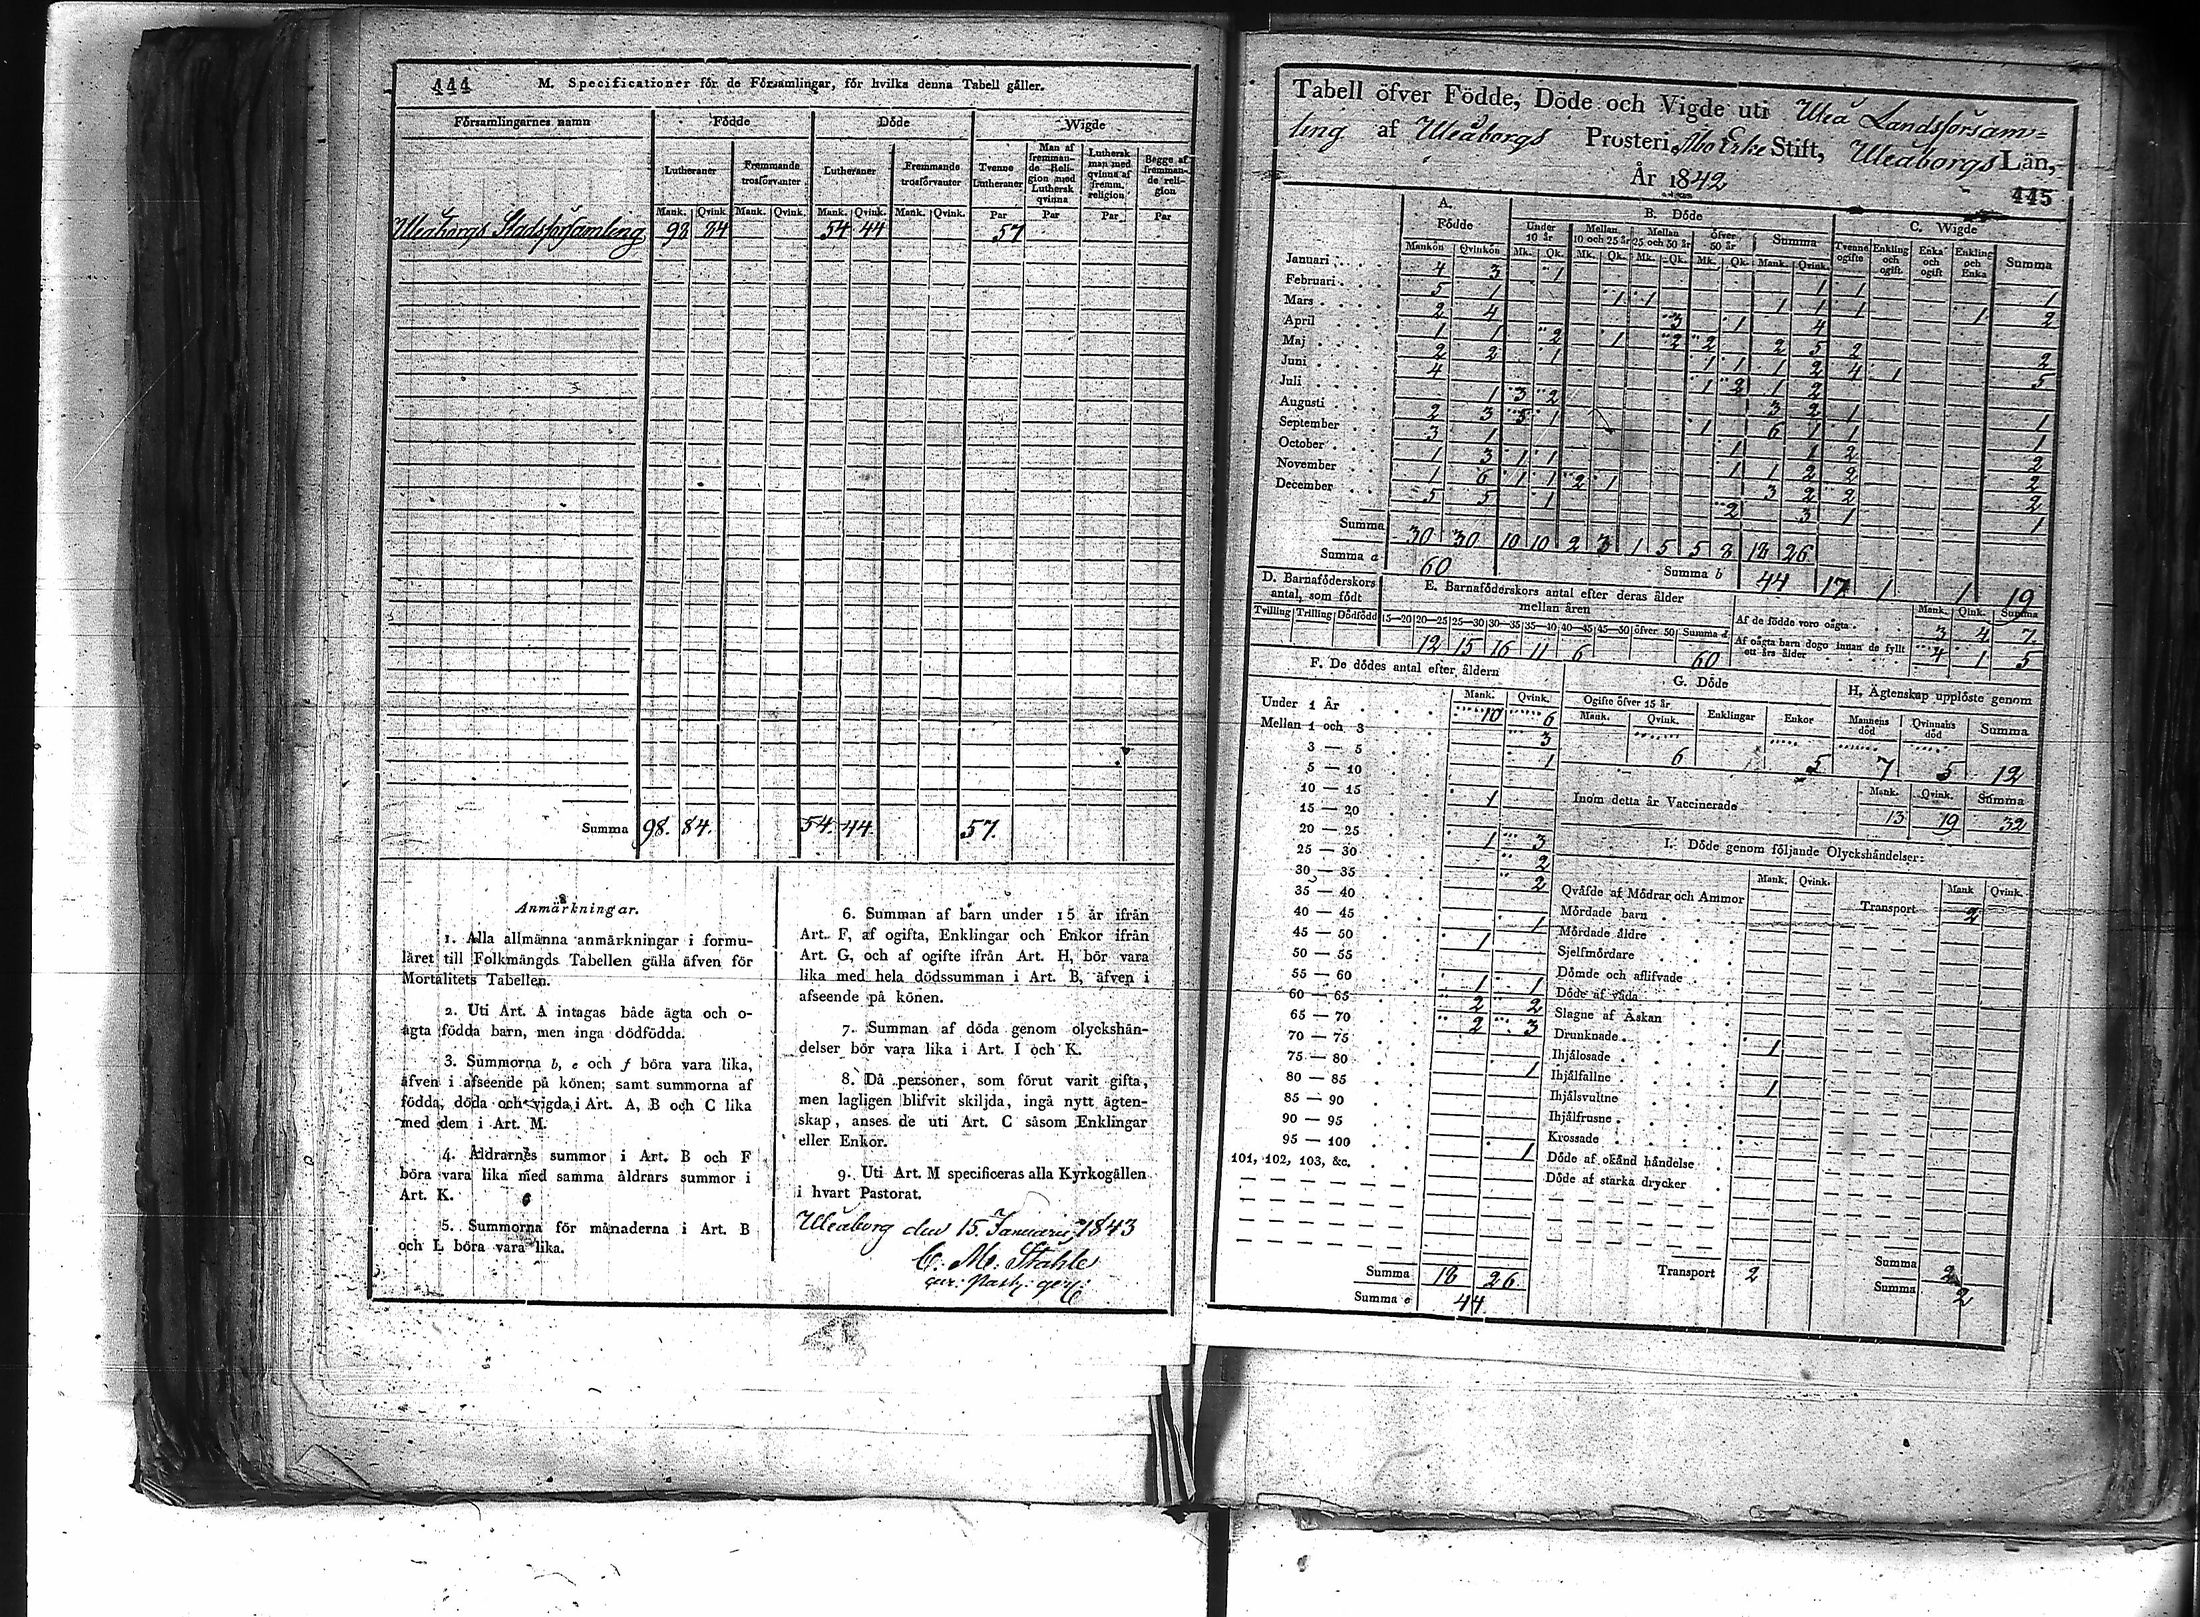 444 M. Specificationer för de Församlingar, för hvilka denna Tabell gäller.
Församlingarnes namn Födde Döde Wigde
Lutheraner Fremmande trosförvanter Lutheraner Fremmande trosförvanter Tvenne Lutheraner Man af fremmande Religion med Luthersk qvinna Luthersk man med qvinna af fremm. religion Begge af fremmande religion
Mank. Qvink. Mank. Qvink. Mank. Qvink. Mank. Qvink. Par Par Par Par
Uleåborgs Stadsförsamling 98 84 54 44 57
Summa 98. 84. 54. 44. 57.
Anmärkningar.
1. Alla allmänna anmärkningar i formu-
läret till Folkmängds Tabellen gälla äfven för
Mortalitets Tabellen.
2. Uti Art. A intagas både ägta och o-
ägta födda barn, men inga dödfödda.
3. Summorna b, e och f böra vara lika,
äfven i afseende på könen; samt summorna af
födda, döda och vigda i Art. A, B och C lika
med dem i Art. M.
4. Åldrarnes summor i Art. B och F
böra vara lika med samma åldrars summor i
Art. K.
5. Summorna för månaderna i Art. B
och L böra vara lika.
6. Summan af barn under 15 år ifrån
Art. F, af ogifta, Enklingar och Enkor ifrån
Art. G, och af ogifte ifrån Art. H, bör vara
lika med hela dödssumman i Art. B, äfven i
afseende på könen.
7. Summan af döda genom olyckshän-
delser bör vara lika i Art. I och K.
8. Då personer, som förut varit gifta,
men lagligen blifvit skiljda, ingå nytt ägten-
skap, anses de uti Art. C såsom Enklingar
eller Enkor.
9. Uti Art. M specificeras alla Kyrkogällen
i hvart Pastorat.
Uleåborg den 15. Januarii 1843
C. M. Ståhle
Tabell öfver Födde, Döde och Vigde uti Uleå Landsförsam=
ling af Uleåborgs Prosteri, Åbo Erke Stift, Uleåborgs Län,
År 1842
445
A. Födde B. Döde C. Wigde
Mankön Qvinkön Under 10 år Mellan 10 och 25 år Mellan 25 och 50 år öfver 50 år Summa Tvenne ogifte Enkling och ogift Enka och ogift Enkling och Enka Summa
Mk. Qk. Mk. Qk. Mk. Qk. Mk. Qk. Mank. Qvink.
Januari 4 3 1 1 1 1
Februari 5 1 1 1 1 1 1 1 2
Mars 2 4 3 1 4
April 1 1 2 1 2 2 2 5 2 2
Maj 2 2 1 1 1 1 2 4 1 5
Juni 4 1 2 1 2
Juli 1 3 2 3 2 1 1
Augusti 2 3 5 1 1 6 1 1 1
September 3 1 1 1 2 2
October 1 3 1 1 1 1 2 2 2
November 1 6 1 1 2 1 3 2 2 2
December 5 5 1 2 3 1 1
Summa 30 30 10 10 2 3 1 5 5 8 18 26
Summa a 60 Summa b 44 17 1 1 19
D. Barnaföderskors antal, som födt
Tvilling Trilling Dödfödd
E. Barnaföderskors antal efter deras ålder mellan åren
15—20 20—25 25—30 30—35 35—40 40—45 45—50 öfver 50 Summa d
12 15 16 11 6 60
Mank. Qink. Summa
Af de födde voro oägta 3 4 7
Af oägta barn dogo innan de fyllt ett års ålder 4 1 5
F. De dödes antal efter åldern
Mank. Qvink.
Under 1 År 10 6
Mellan 1 och 3 3
3 — 5 1
5 — 10
10 — 15 1
15 — 20
20 — 25 1 3
25 — 30 2
30 — 35 2
35 — 40
40 — 45 1
45 — 50 1
50 — 55
55 — 60 1 1
60 — 65 2 2
65 — 70 2 3
70 — 75
75 — 80 1
80 — 85
85 — 90
90 — 95
95 — 100 1
101, 102, 103, &c.
Summa 18 26
Summa e 44
G. Döde
Ogifte öfver 15 år Enklingar Enkor
Mank. Qvink.
6 1 5
H. Ägtenskap upplöste genom
Mannens död Qvinnans död Summa
7 5 12
Mank. Qvink. Summa
Inom detta år Vaccinerade 13 19 32
I. Döde genom följande Olyckshändelser:
Mank. Qvink. Mank Qvink.
Qväfde af Mödrar och Ammor
Transport 2
Mördade barn
Mördade äldre
Sjelfmördare
Dömde och aflifvade
Döde af våda
Slagne af Åskan
Drunknade 1
Ihjälosade
Ihjälfallne 1
Ihjälsvultne
Ihjälfrusne
Krossade
Döde af okänd händelse
Döde af starka drycker
Transport 2
Summa 2
Summa 2